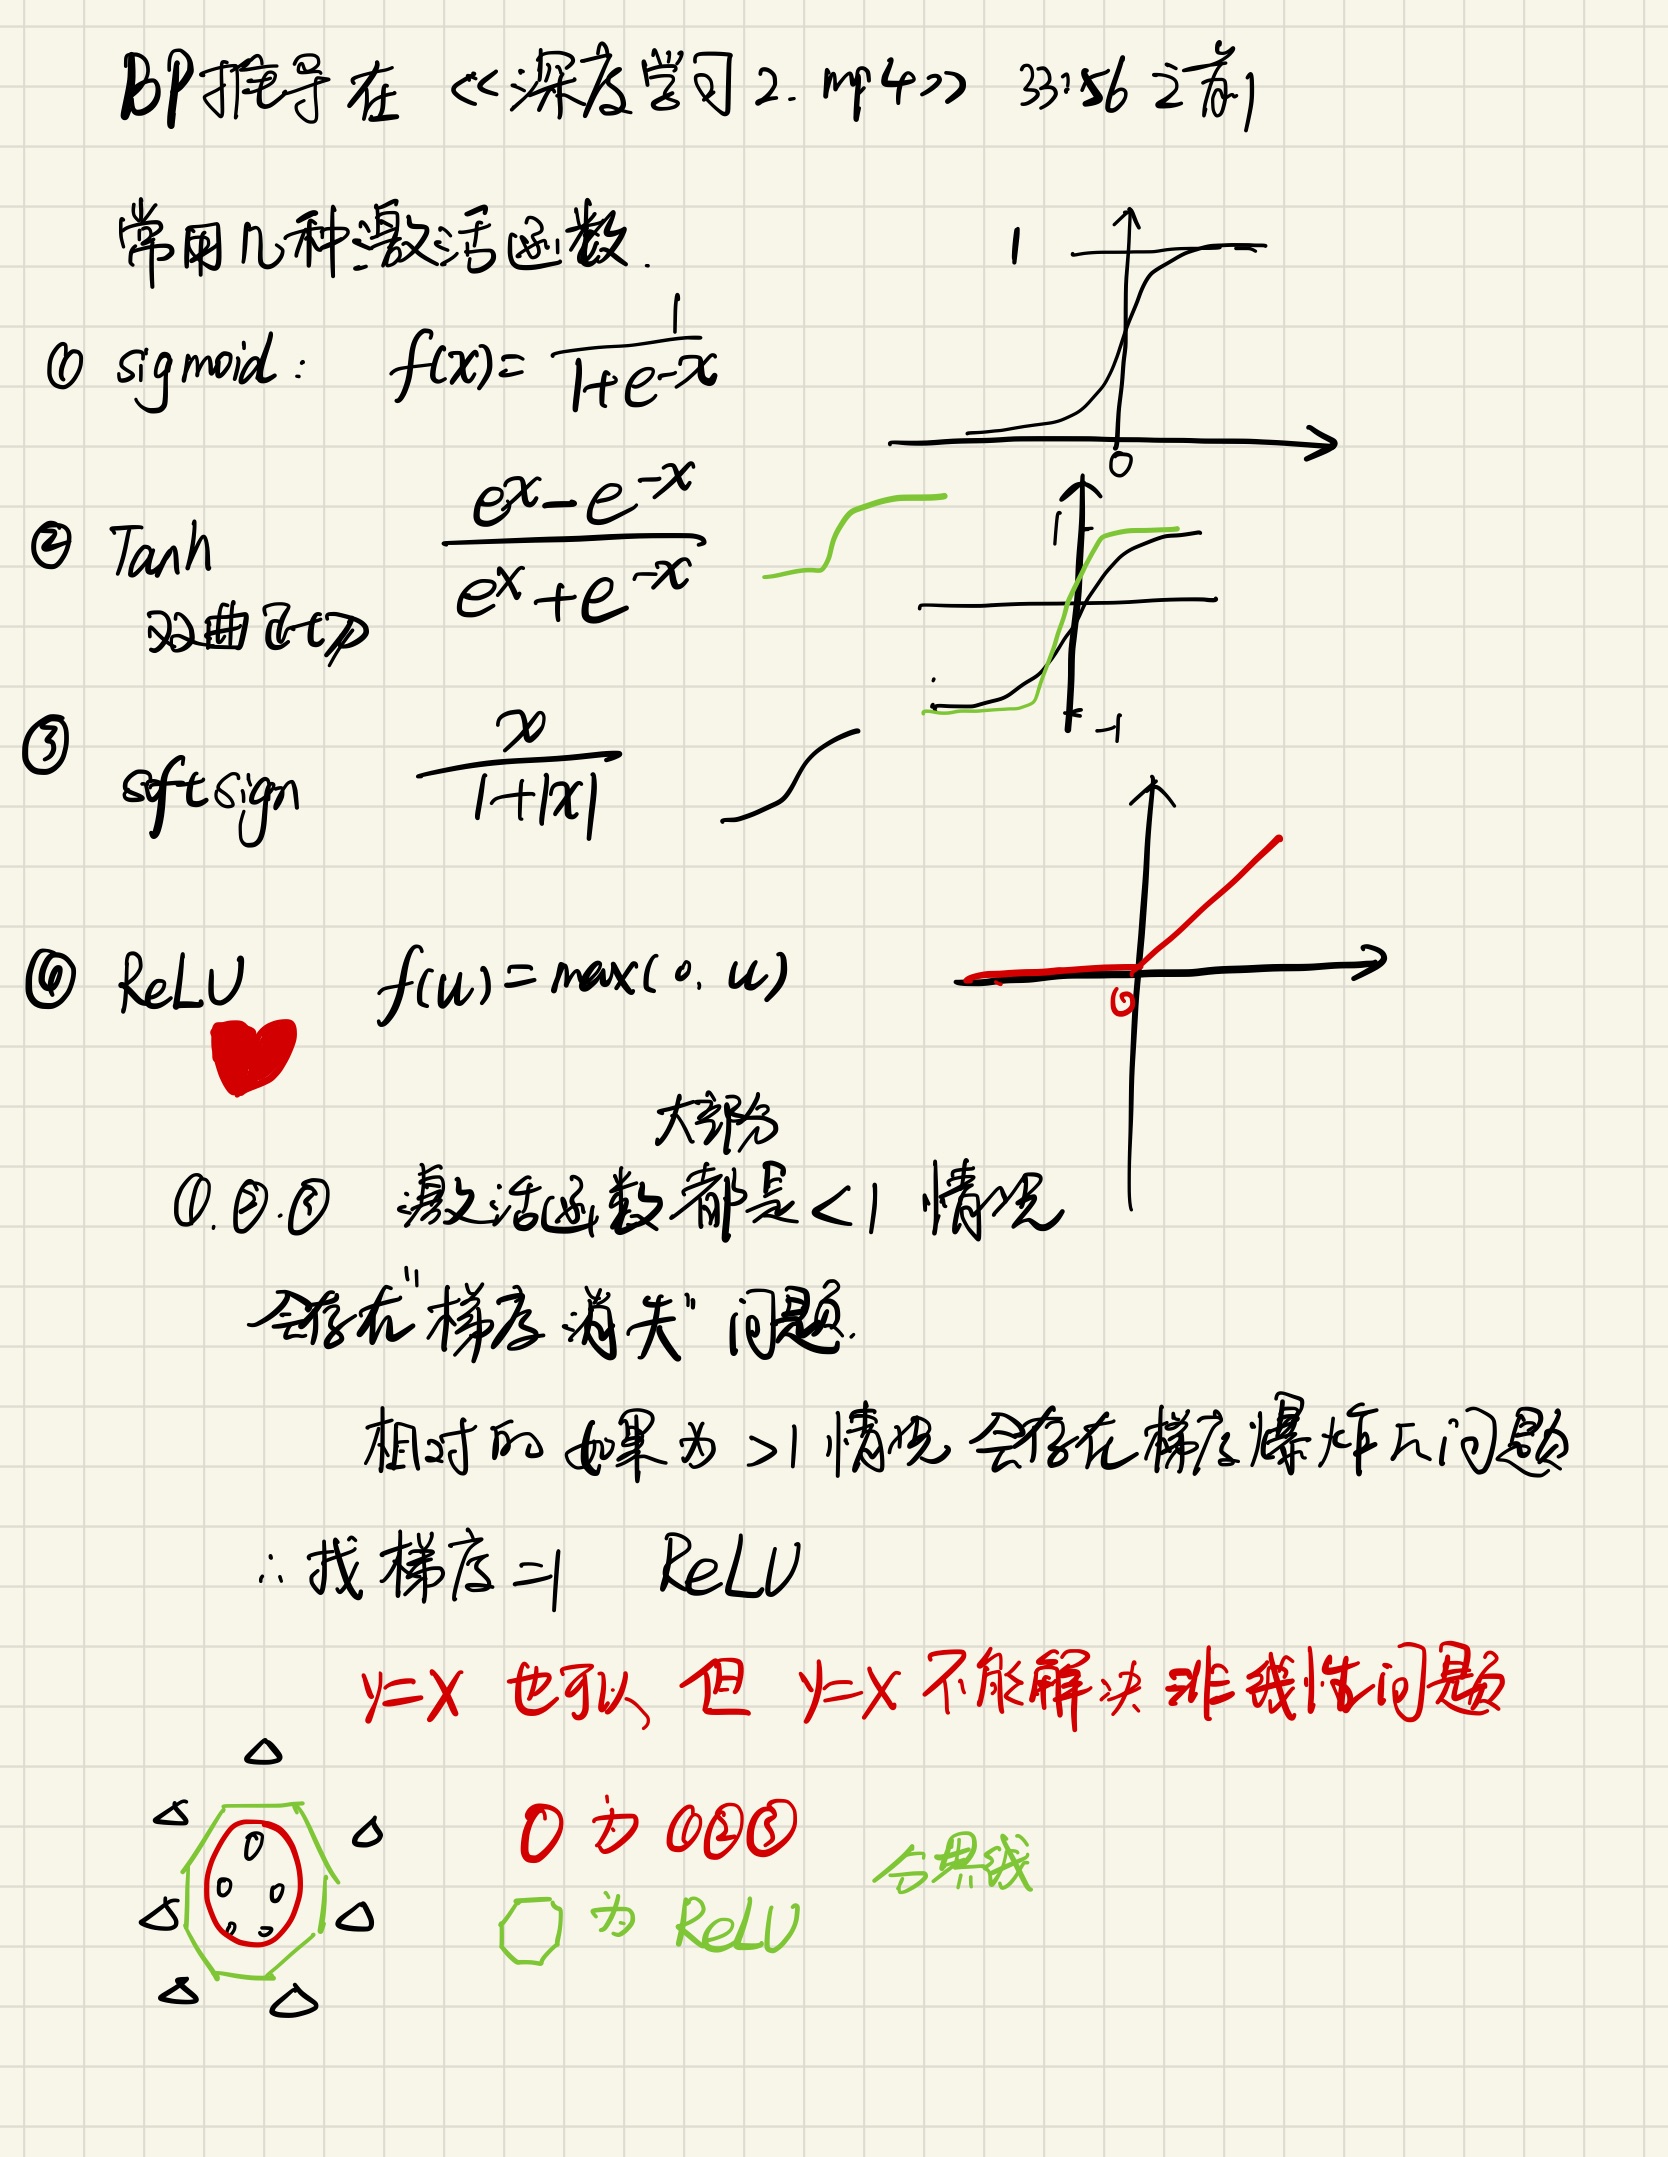 BP推导在《深度学习2.mp4》 33:56之前
常用几种激活函数.
① sigmoid: f(x)= 1/(1+e^-x)
1
0
② Tanh (e^x-e^-x)/(e^x+e^-x)
双曲正切
1
-1
③ softsign x/(1+|x|)
④ ReLU f(u)=max(0, u)
0
大部分
①.②.③ 激活函数都是<1情况
会存在"梯度消失"问题.
相对的 如果为>1情况 会存在梯度爆炸 问题
∴找梯度=1 ReLU
y=x 也可以 但 y=x 不能解决非线性问题
O 为 ①②③
分界线
为 ReLU